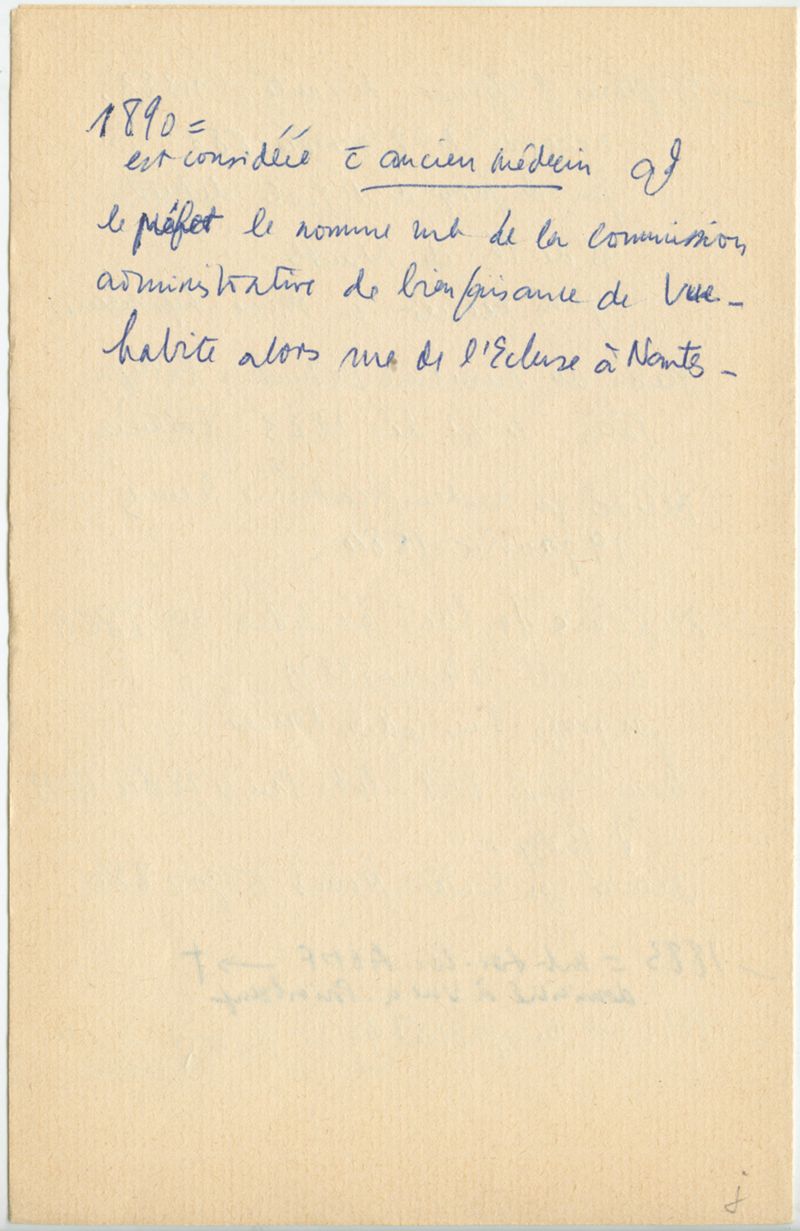 1890 =
est considéré c̄ ancien médecin qd
le préfet le nomme mb de la commission
administrative de bienfaisance de Vue -
habite alors rue de l'Ecluse à Nantes -
j